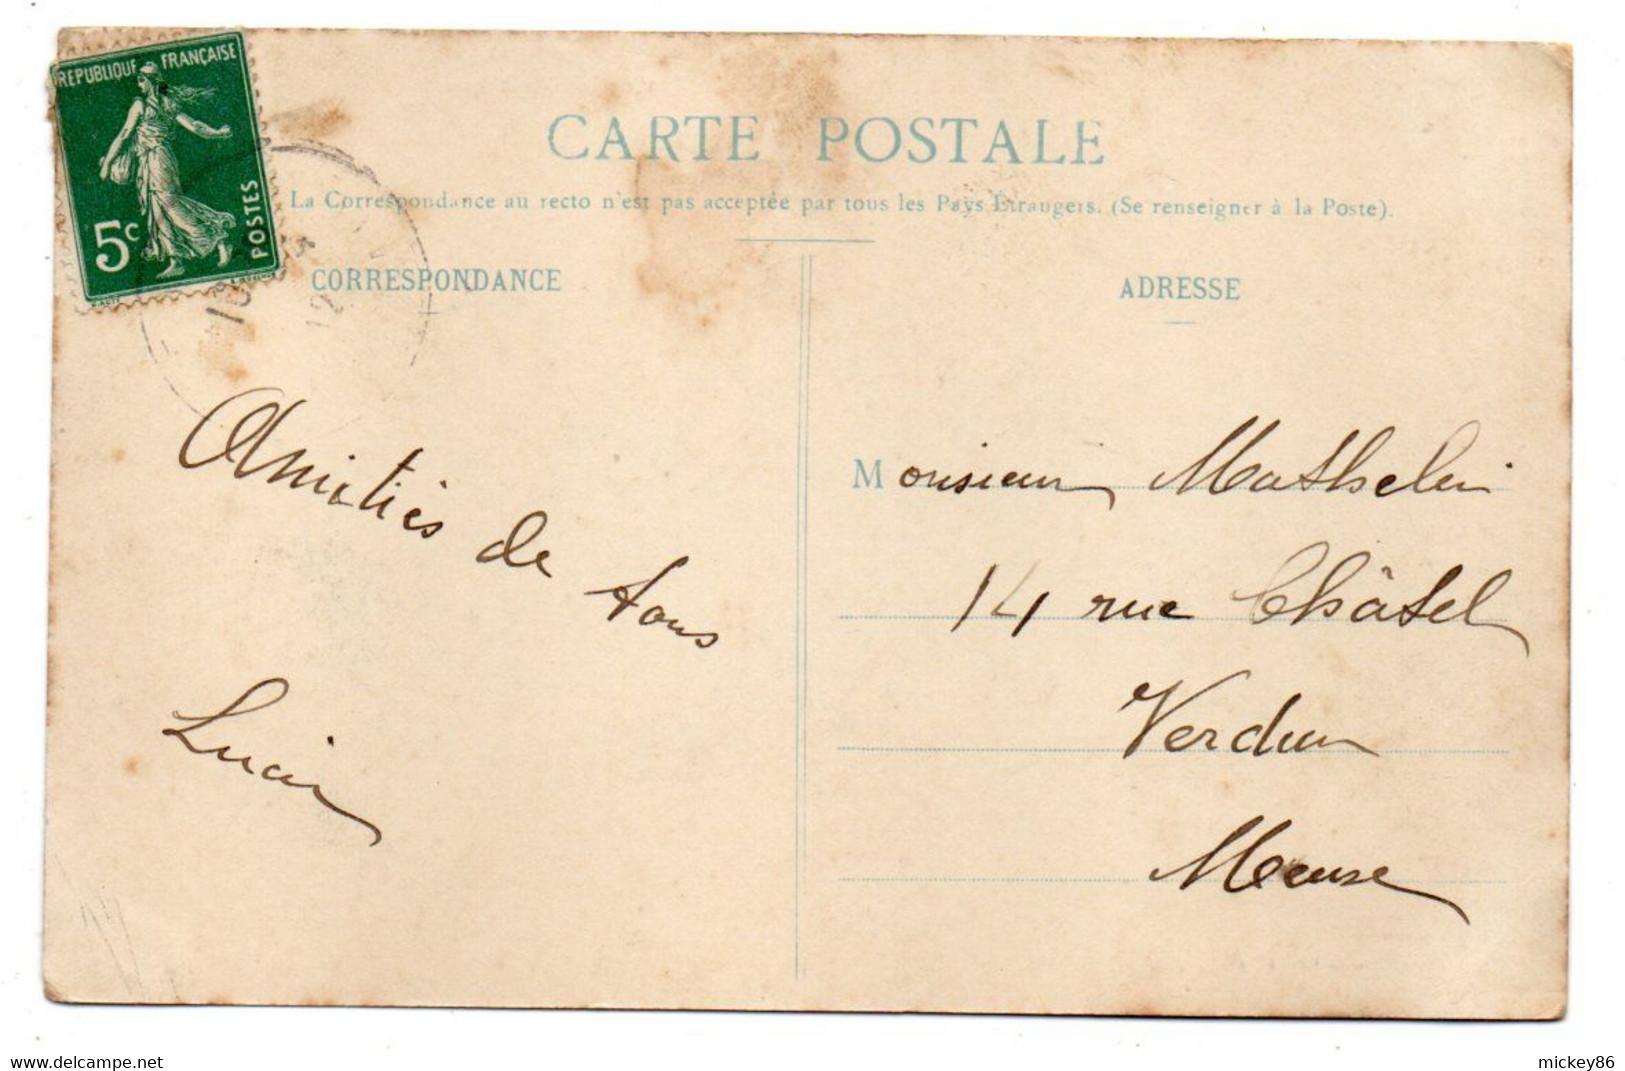 REPUBLIQUE FRANÇAISE
5c
POSTES
CARTE POSTALE
La Correspondance au recto n'est pas acceptée par tous les Pays Étrangers. (Se renseigner à la Poste).
CORRESPONDANCE
ADRESSE
Amitiés de tous
Lucien
Monsieur Mathelin
14 rue Châtel
Verdun
Meuse
mickey86
http://www.delcampe.net